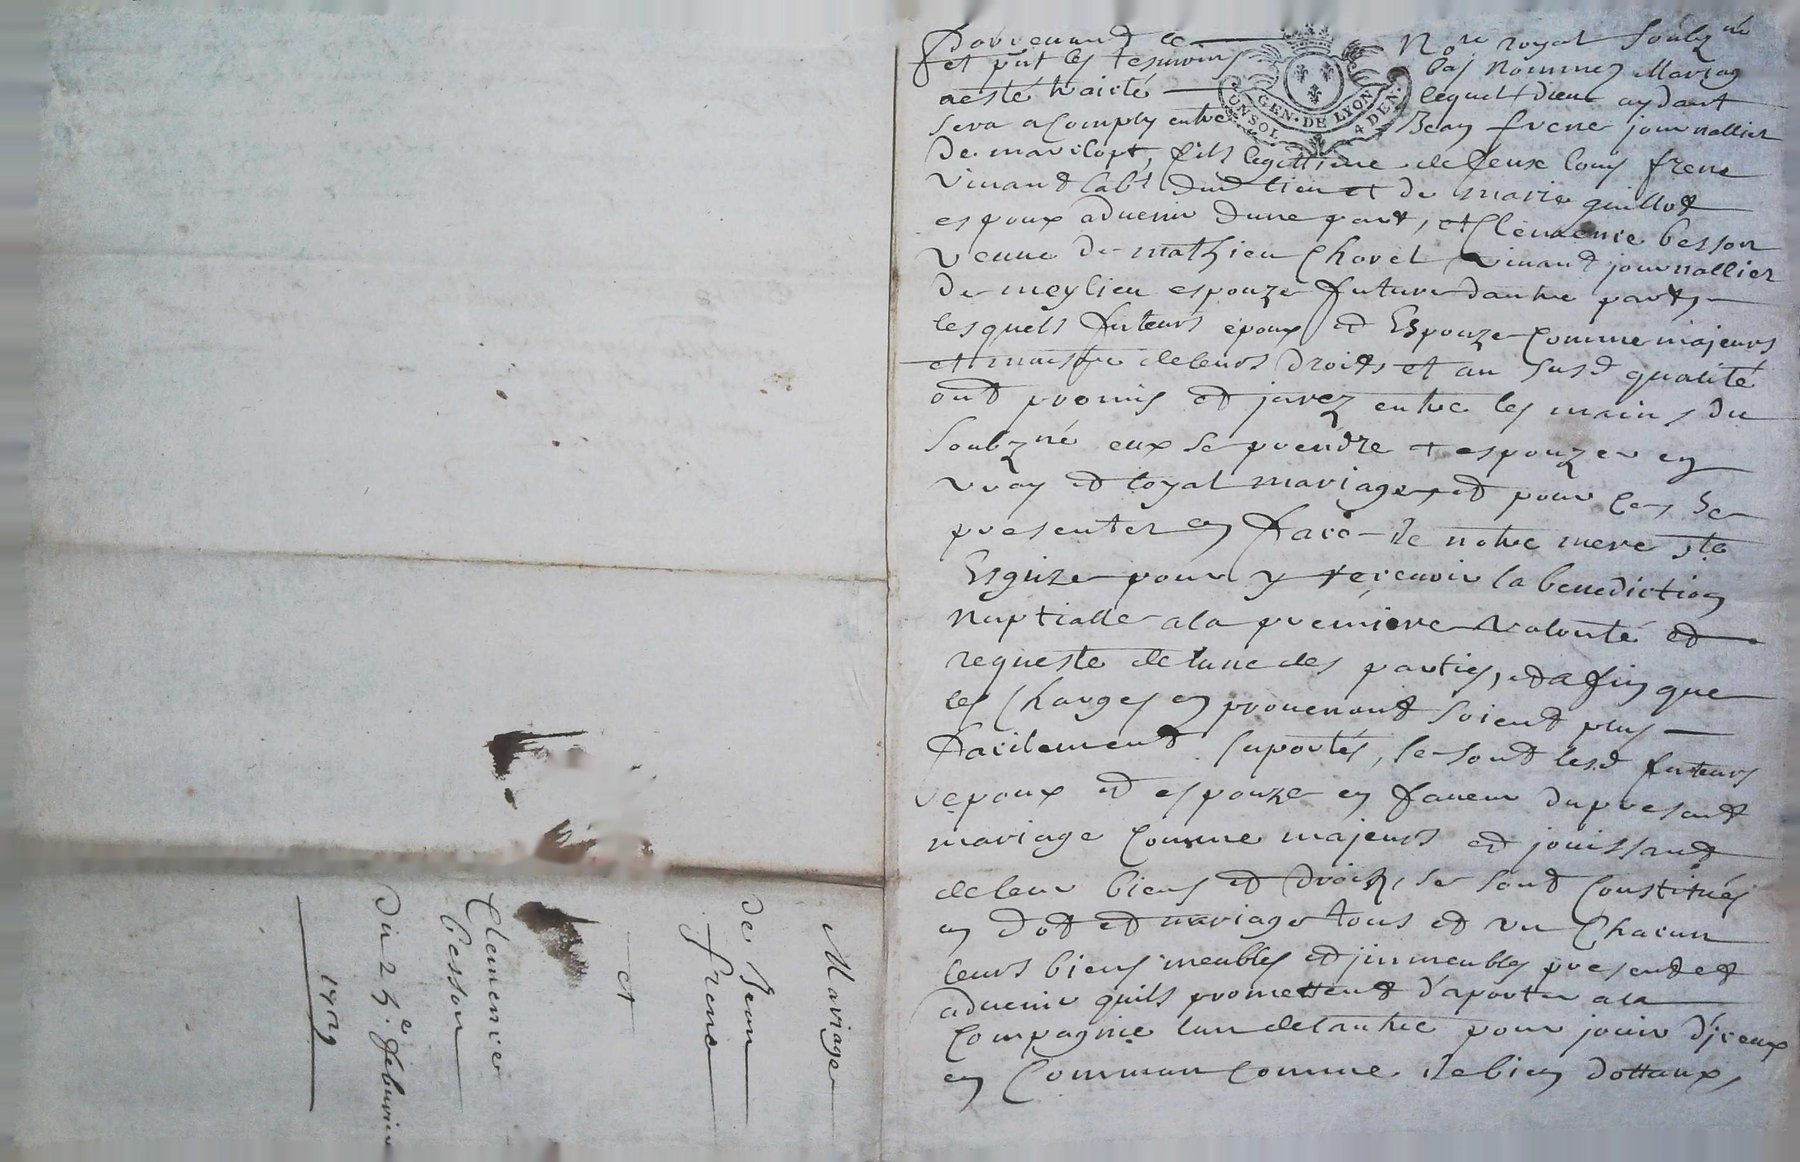 Pardevand le Nore royal soubzné
et put les tesmoins bas nommez Mariag
a esté traicté lequel dieu aydant
sera acomply entre Jean frene journallier
De marclopt, fils legittime de feux louis frene
vivand labr dud lieu et de marie guillot
espoux aduenir dune part, et Clemence besson
veuue de mathieu Chovet vivand journallier
De meylieu espouze future dautre part,
lesquels futeurs epoux et Espouze Comme majeurs
et maistre de leurs droits et au susd qualité
ond promis et jurez entre les mains du
soubzné eux se prendre et espouzer en
vray et loyal mariage et pour ce se
presenter en face de notre mere ste
Esglize pour y recevoir la benediction
nuptialle a la premiere volonté et
requeste de lune des parties, et afin que
les Charges en prouenant soiend plus
facilement suportés, se sond lesd futeurs
epoux et espouze en faueur du presant
mariage Comme majeurs et jouissant
de leur biens et droits, se sond Constitués
en dot et mariage tous et un Chacun
leurs biens meubles et jmmeubles presend et
aduenir quils promettend d'aporter a la
Compagnie lun de lautre pour jouir d'jceux
en Commun Comme de bien dottaux,
GEN. DE LYON
UN SOL 4 DEN.
Mariage
de Jean
frene
et
Clemence
besson
Du 25e febvrier
1729